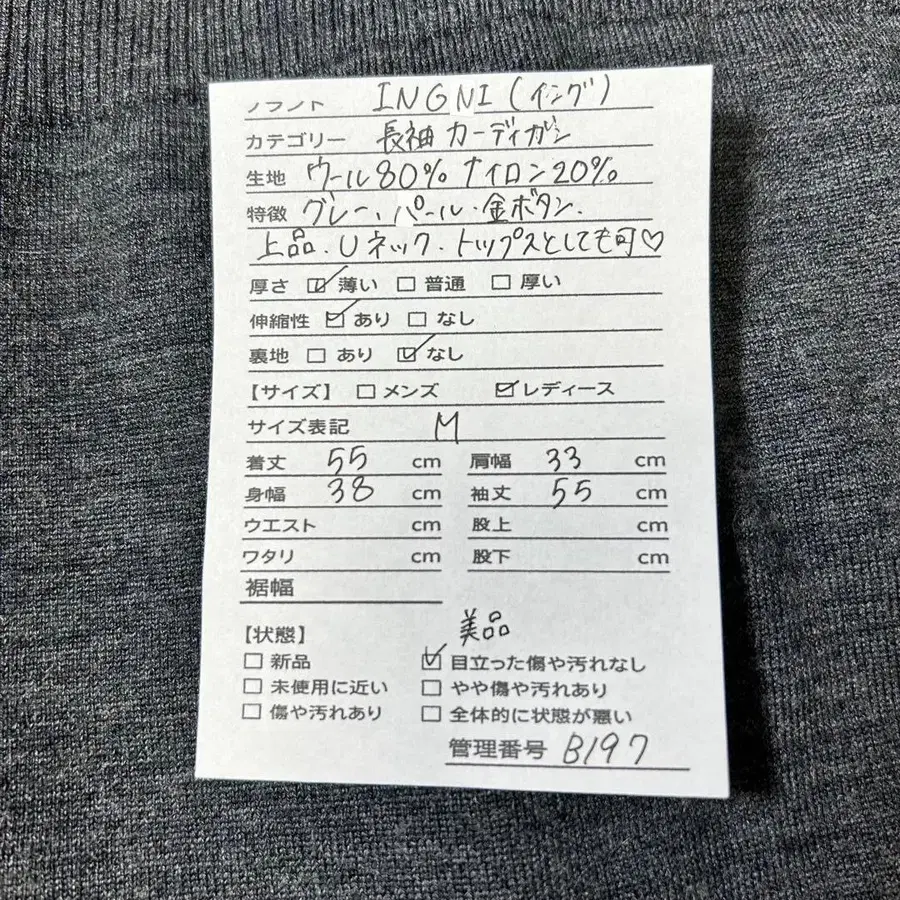 ブランド INGNI (イング)
カテゴリー 長袖 カーディガン
生地 ウール80% ナイロン20%
特徴 グレー、パール・金ボタン.
上品・Uネック・トップスとしても可♡
厚さ ☑ 薄い ☐ 普通 ☐ 厚い
伸縮性 ☑ あり ☐ なし
裏地 ☐ あり ☑ なし
【サイズ】 ☐ メンズ ☑ レディース
サイズ表記 M
着丈 55 cm 肩幅 33 cm
身幅 38 cm 袖丈 55 cm
ウエスト cm 股上 cm
ワタリ cm 股下 cm
裾幅
【状態】 美品
☐ 新品 ☑ 目立った傷や汚れなし
☐ 未使用に近い ☐ やや傷や汚れあり
☐ 傷や汚れあり ☐ 全体的に状態が悪い
管理番号 B197